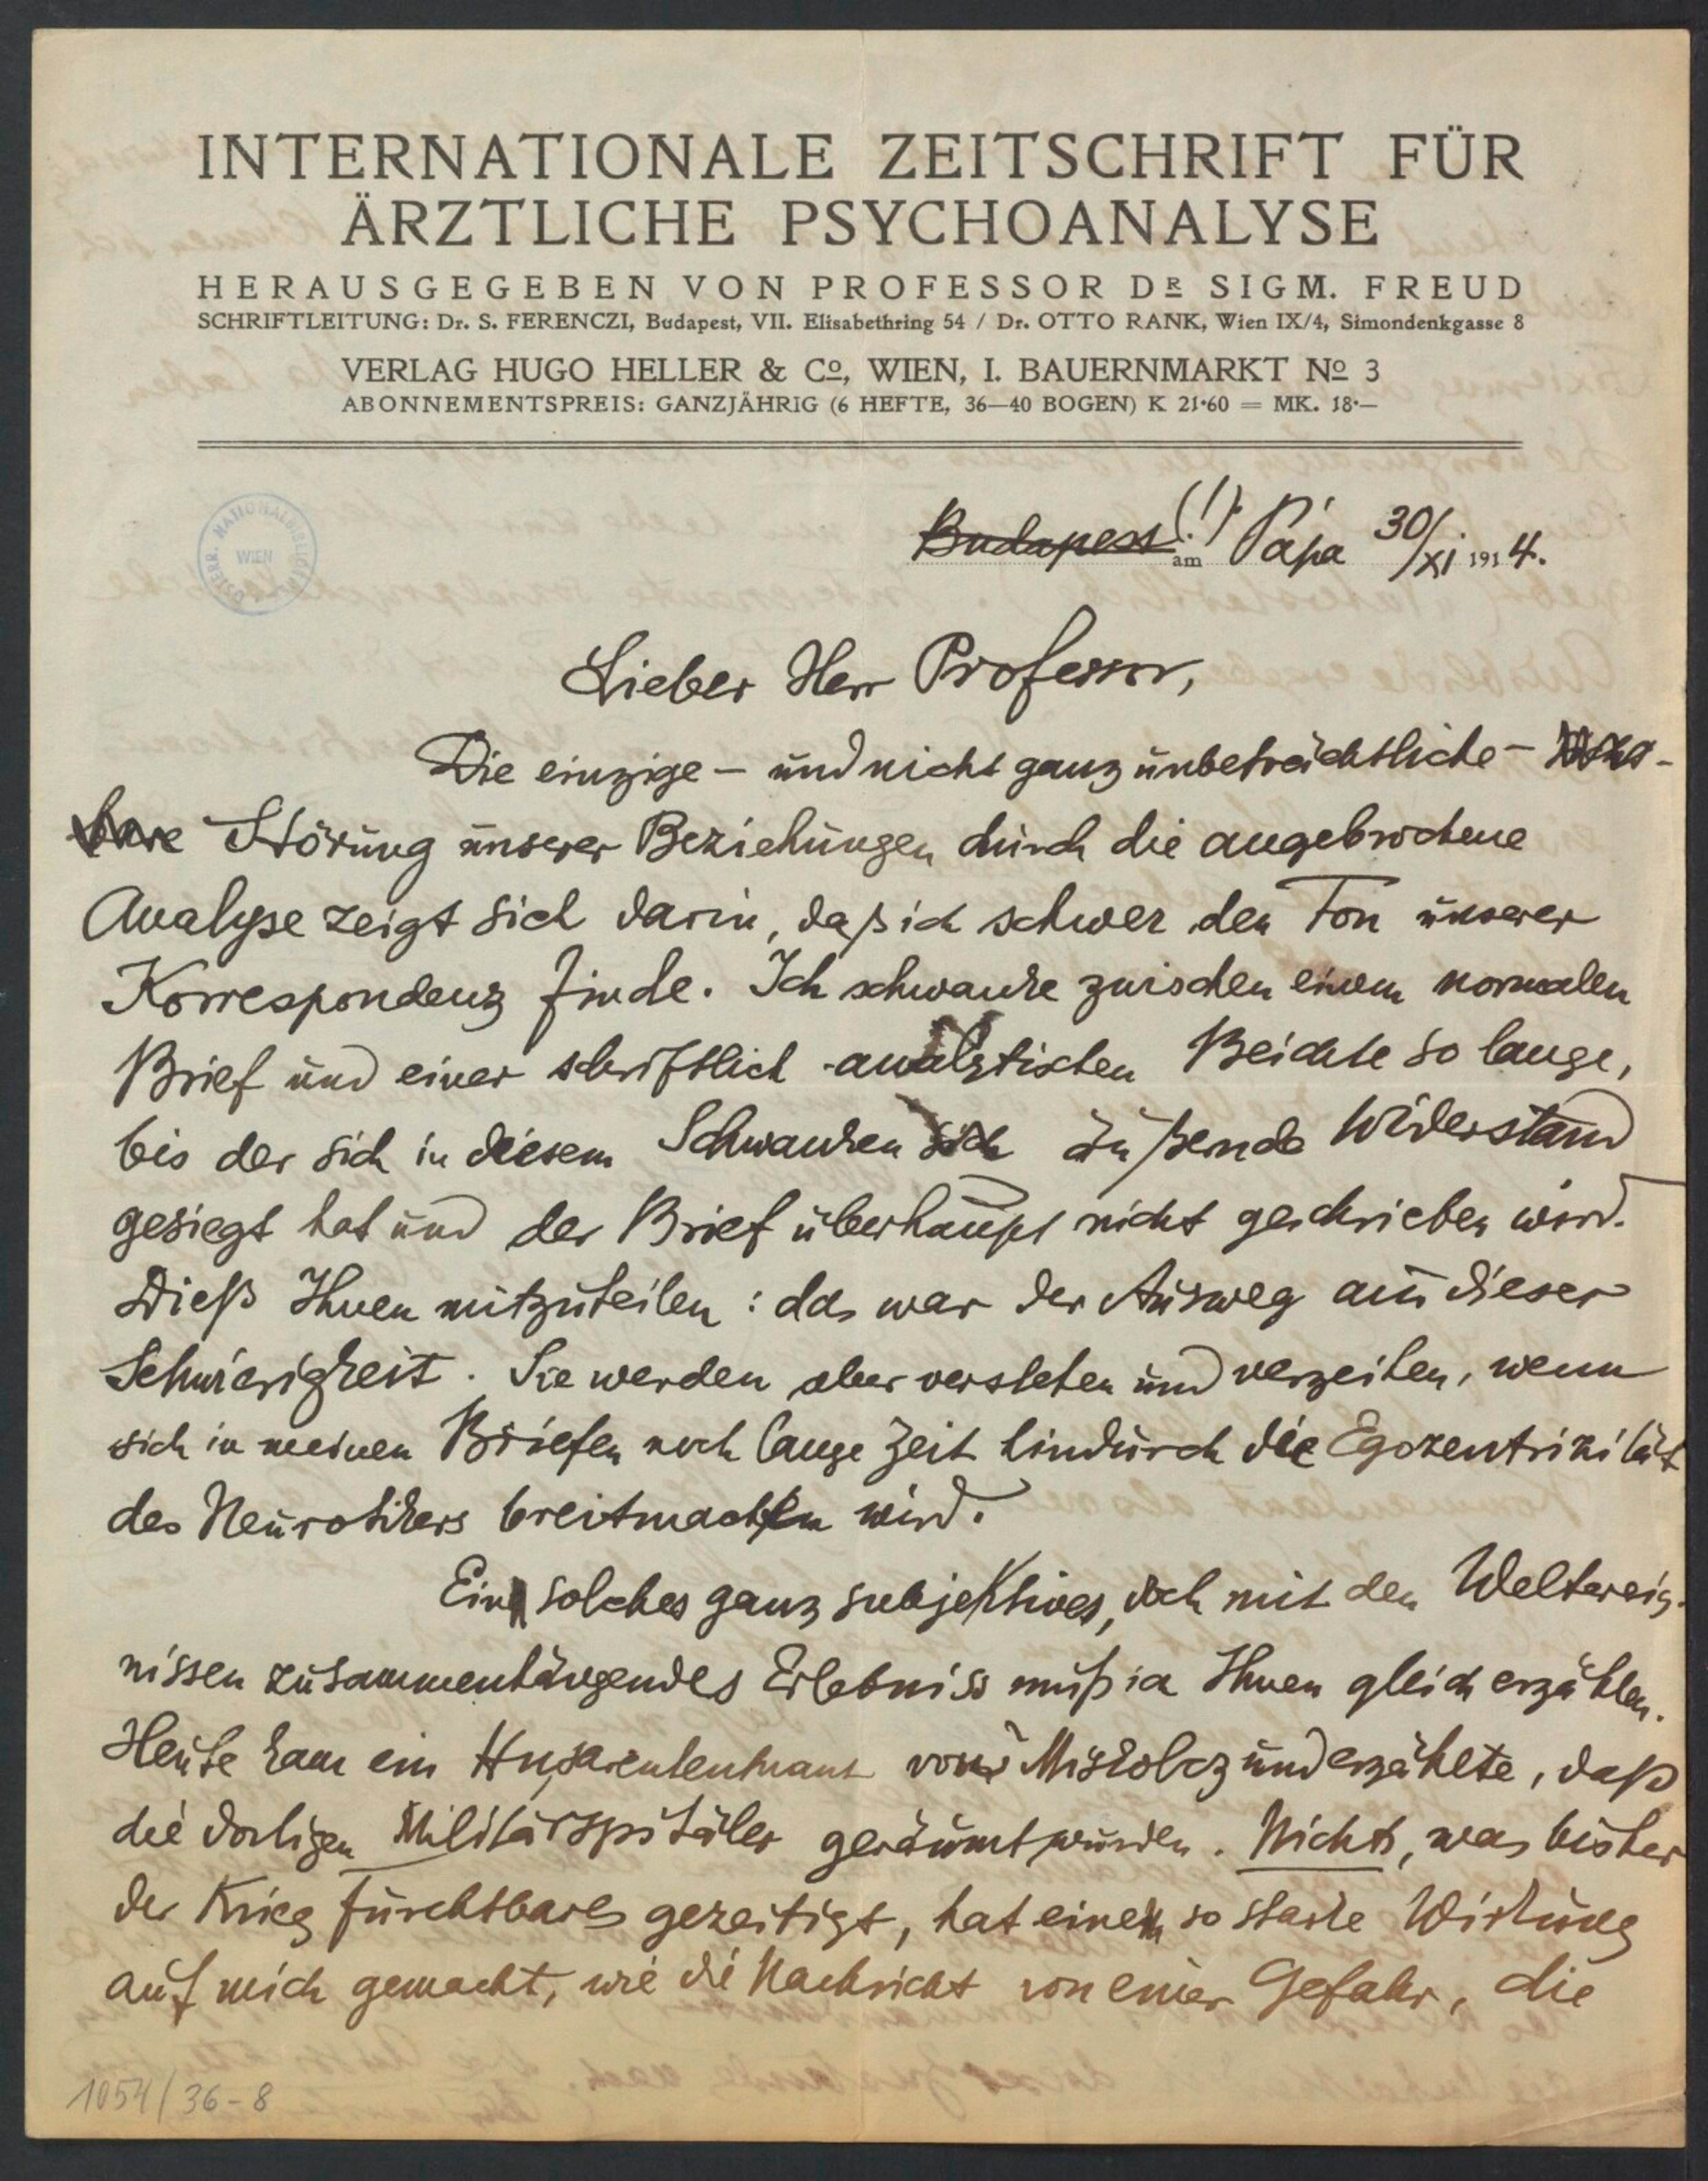 INTERNATIONALE ZEITSCHRIFT FÜR
ÄRZTLICHE PSYCHOANALYSE
HERAUSGEGEBEN VON PROFESSOR DR SIGM. FREUD
SCHRIFTLEITUNG: Dr. S. FERENCZI, Budapest, VII. Elisabethring 54 / Dr. OTTO RANK, Wien IX/4, Simondenkgasse 8
VERLAG HUGO HELLER & Co, WIEN, I. BAUERNMARKT No 3
ABONNEMENTSPREIS: GANZJÄHRIG (6 HEFTE, 36—40 BOGEN) K 21·60 = MK. 18·—
ÖSTERR. NATIONALBIBLIOTHEK WIEN
Budapest (!) am Pápa 30/XI 1914.
Lieber Herr Professor,
Die einzige – und nicht ganz unbeträchtliche –
Störung unserer Beziehungen durch die angebrochene
Analyse zeigt sich darin, daß ich schwer den Ton unserer
Korrespondenz finde. Ich schwanke zwischen einem normalen
Brief und einer schriftlich-analytischen Beichte so lange,
bis der sich in diesem Schwanken sich äußernde Widerstand
gesiegt hat und der Brief überhaupt nicht geschrieben wird.
Dieß Ihnen mitzuteilen: das war der Ausweg aus dieser
Schwierigkeit. Sie werden aber verstehen und verzeihen, wenn
sich in meinen Briefen noch lange Zeit hindurch die Egozentrizität
des Neurotikers breitmachen wird.
Ein solches ganz subjektives, doch mit den Weltereig-
nissen zusammenhängendes Erlebniss muß ich Ihnen gleich erzählen.
Heute kam ein Husarenleutnant von Miskolcz und erzählte, daß
die dortigen Militärspitäler geräumt wurden. Nichts, was bisher
der Krieg furchtbares gezeitigt, hat eine so starke Wirkung
auf mich gemacht, wie die Nachricht von einer Gefahr, die
1054/36-8